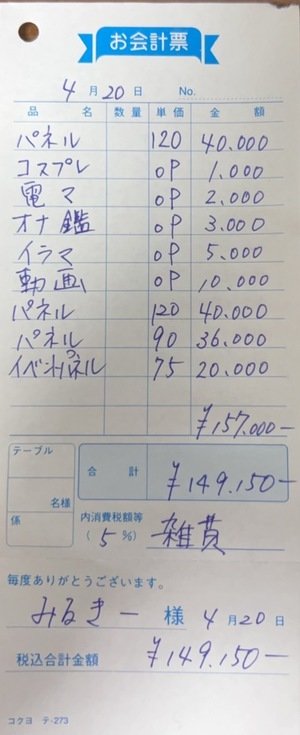 お会計票
4月20日 No.
品名 数量 単価 金額
パネル 120 40.000
コスプレ OP 1.000
電マ OP 2.000
オナ鑑 OP 3.000
イラマ OP 5.000
動画 OP 10.000
パネル 120 40.000
パネル 90 36.000
イベントパネル 75 20.000
¥157.000-
テーブル
名様
係
合計 ¥149.150-
内消費税額等
(5%) 雑費
毎度ありがとうございます。
みるきー 様 4月20日
税込合計金額 ¥149.150-
コクヨ テ-273